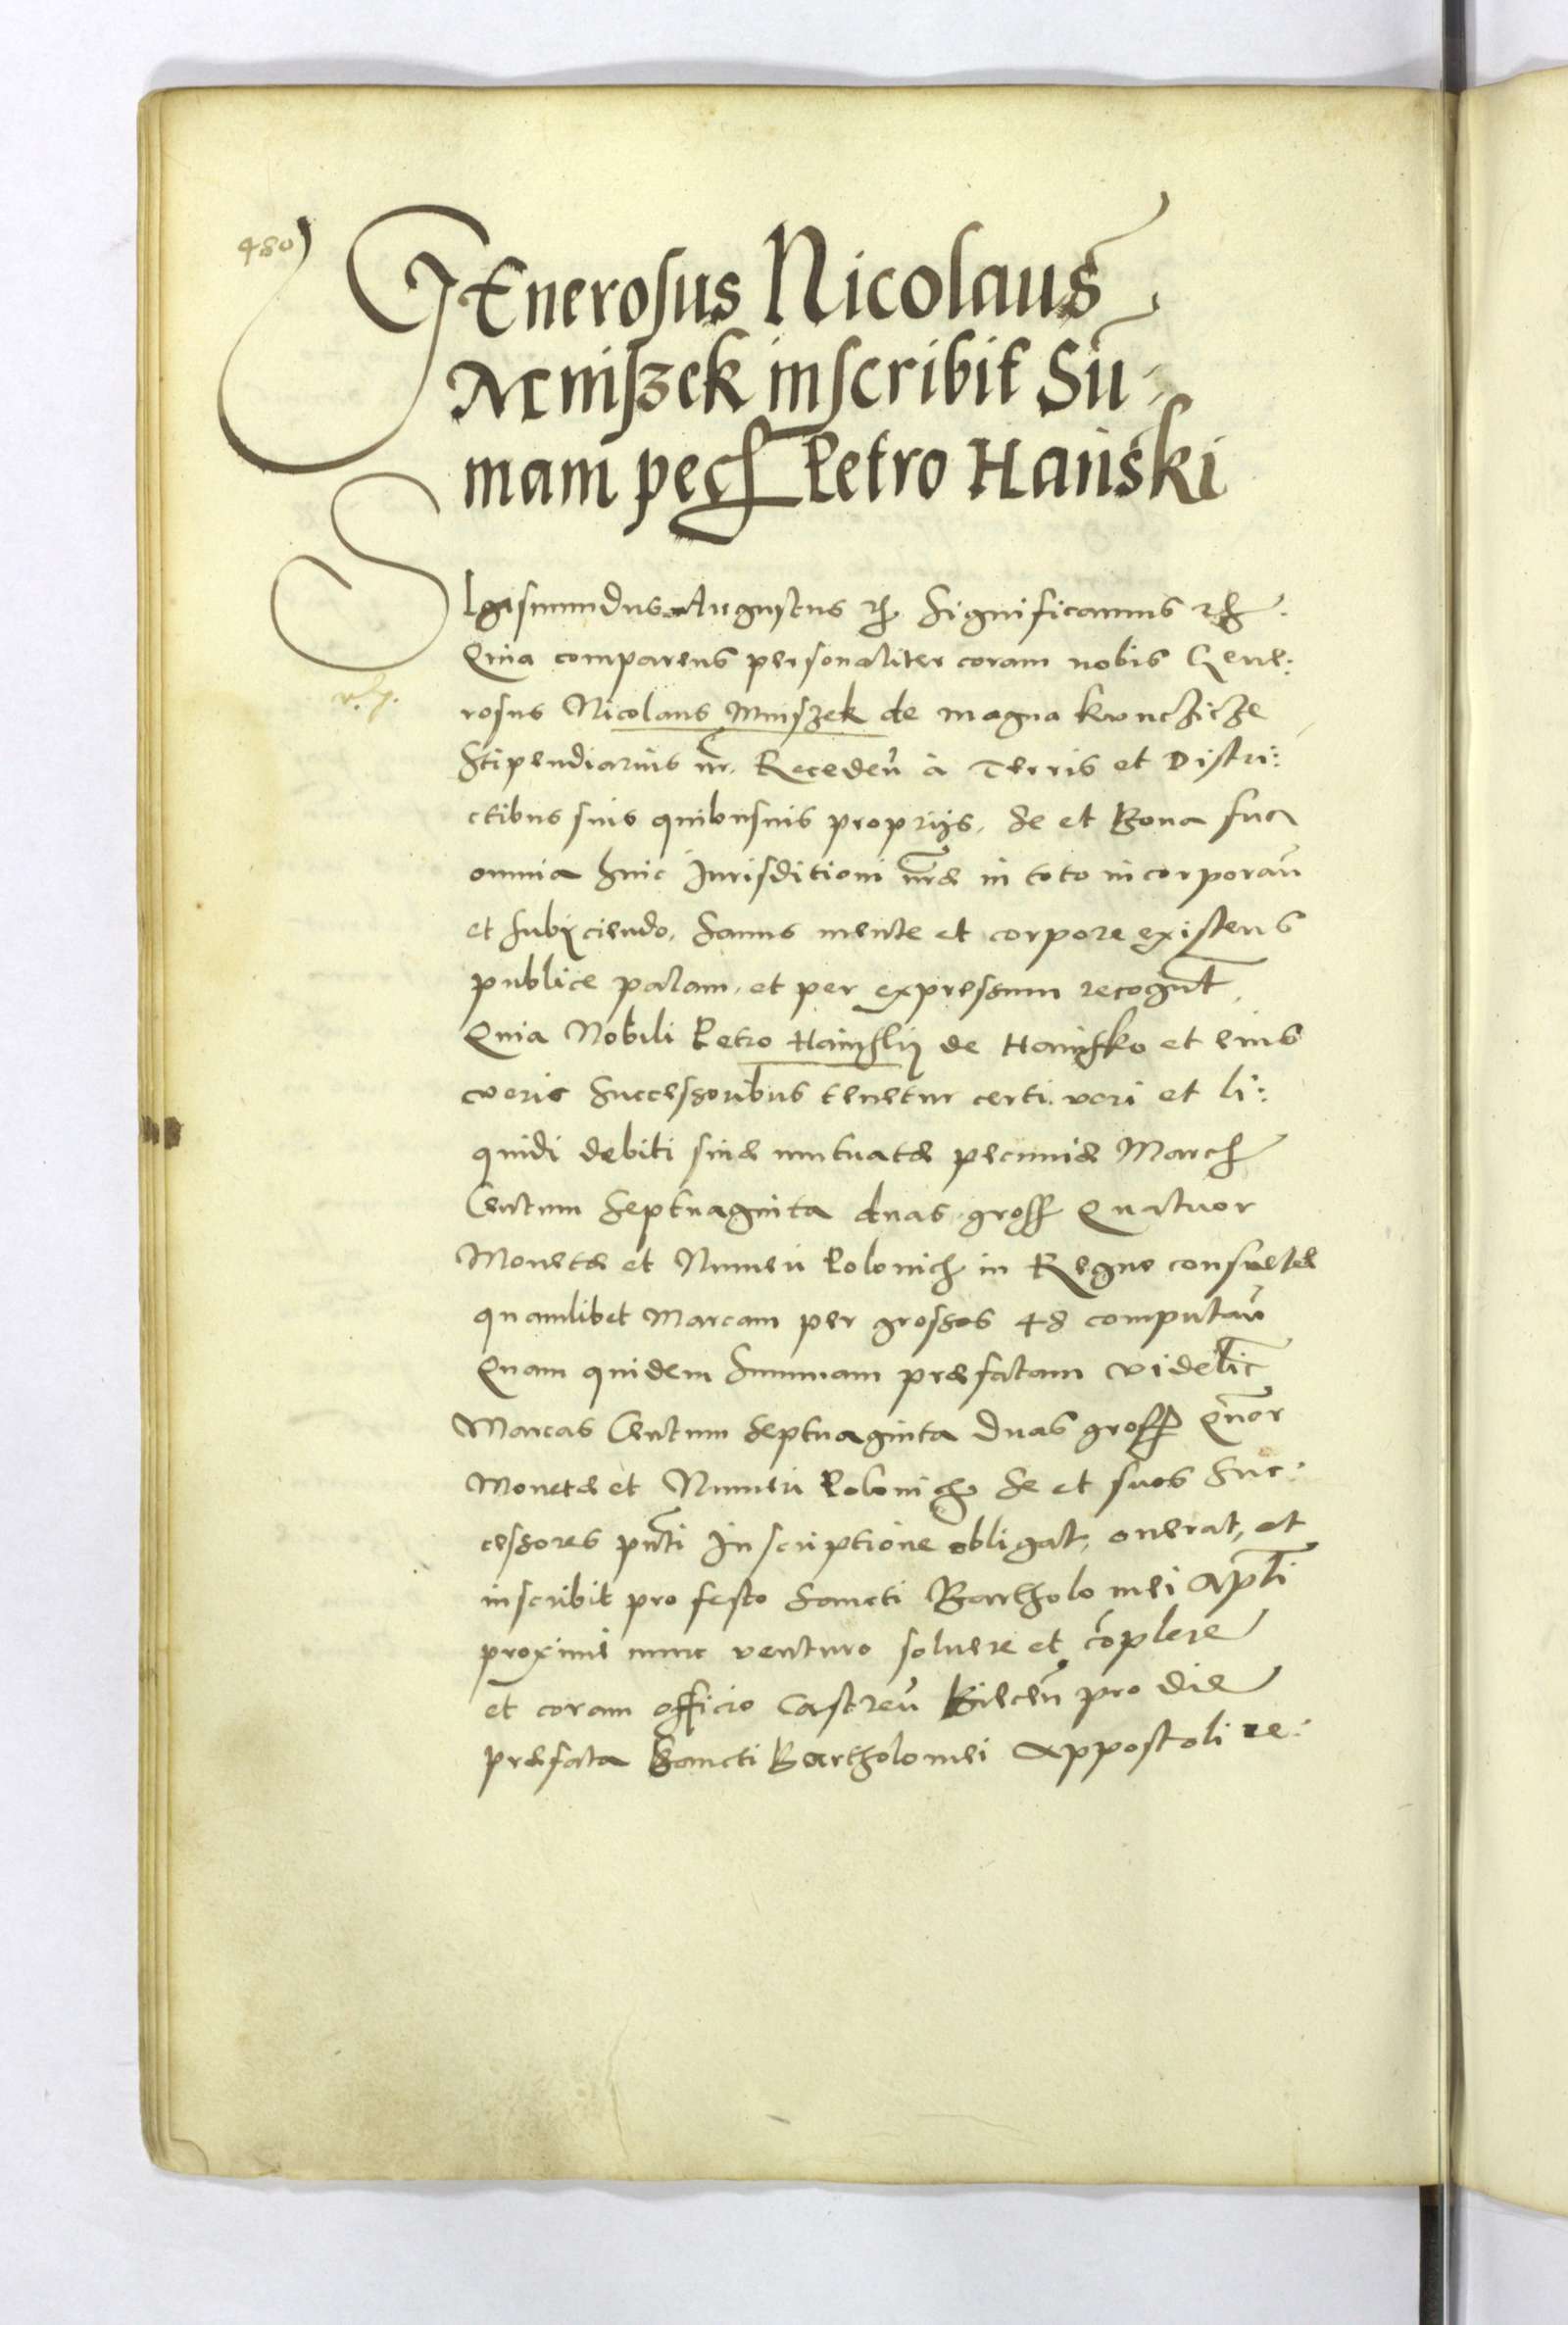 480)
GEnerosus Nicolaus
Mniszek inscribit Sū-
mam pec Petro Hański
SIgismundus Augustus Significamus
Quia comparens personaliter coram nobis Gene:
rosus Nicolaus Mniszek de magna Kunczicze
Stipendiarius nr. Recedeń à Terris et Distri:
ctibus suis quibusuis proprijs. se et Bona sua
omnia huic Jurisditioni nrae in toto incorporań
et subijciendo. Sanus mente et corpore existens
publice palam. et per expressum recognt
Quia Nobili Petro de et eius
veris Successoribus tenetur certi veri et li:
quidi debiti siue mutuatae pecuniae March
Centum Septuaginta duas gross Quatuor
Monetae et Numeri Polonich in Regno consuetae
quamlibet Marcam per grossos 48 computań
Quam quidem Summam praefatam videlic
Marcas Centum Septuaginta duas gross Qnor
Monetae et Numeri Polonich Se et suos Suc:
cessores pnti Inscriptione obligat, onerat, et
inscribit pro festo Sancti Bartholomei Apli
proxime nunc venturo soluere et cōplere
et coram officio Castreń Bieceń pro die
praefata Sancti Bartholomei Appostoli re: